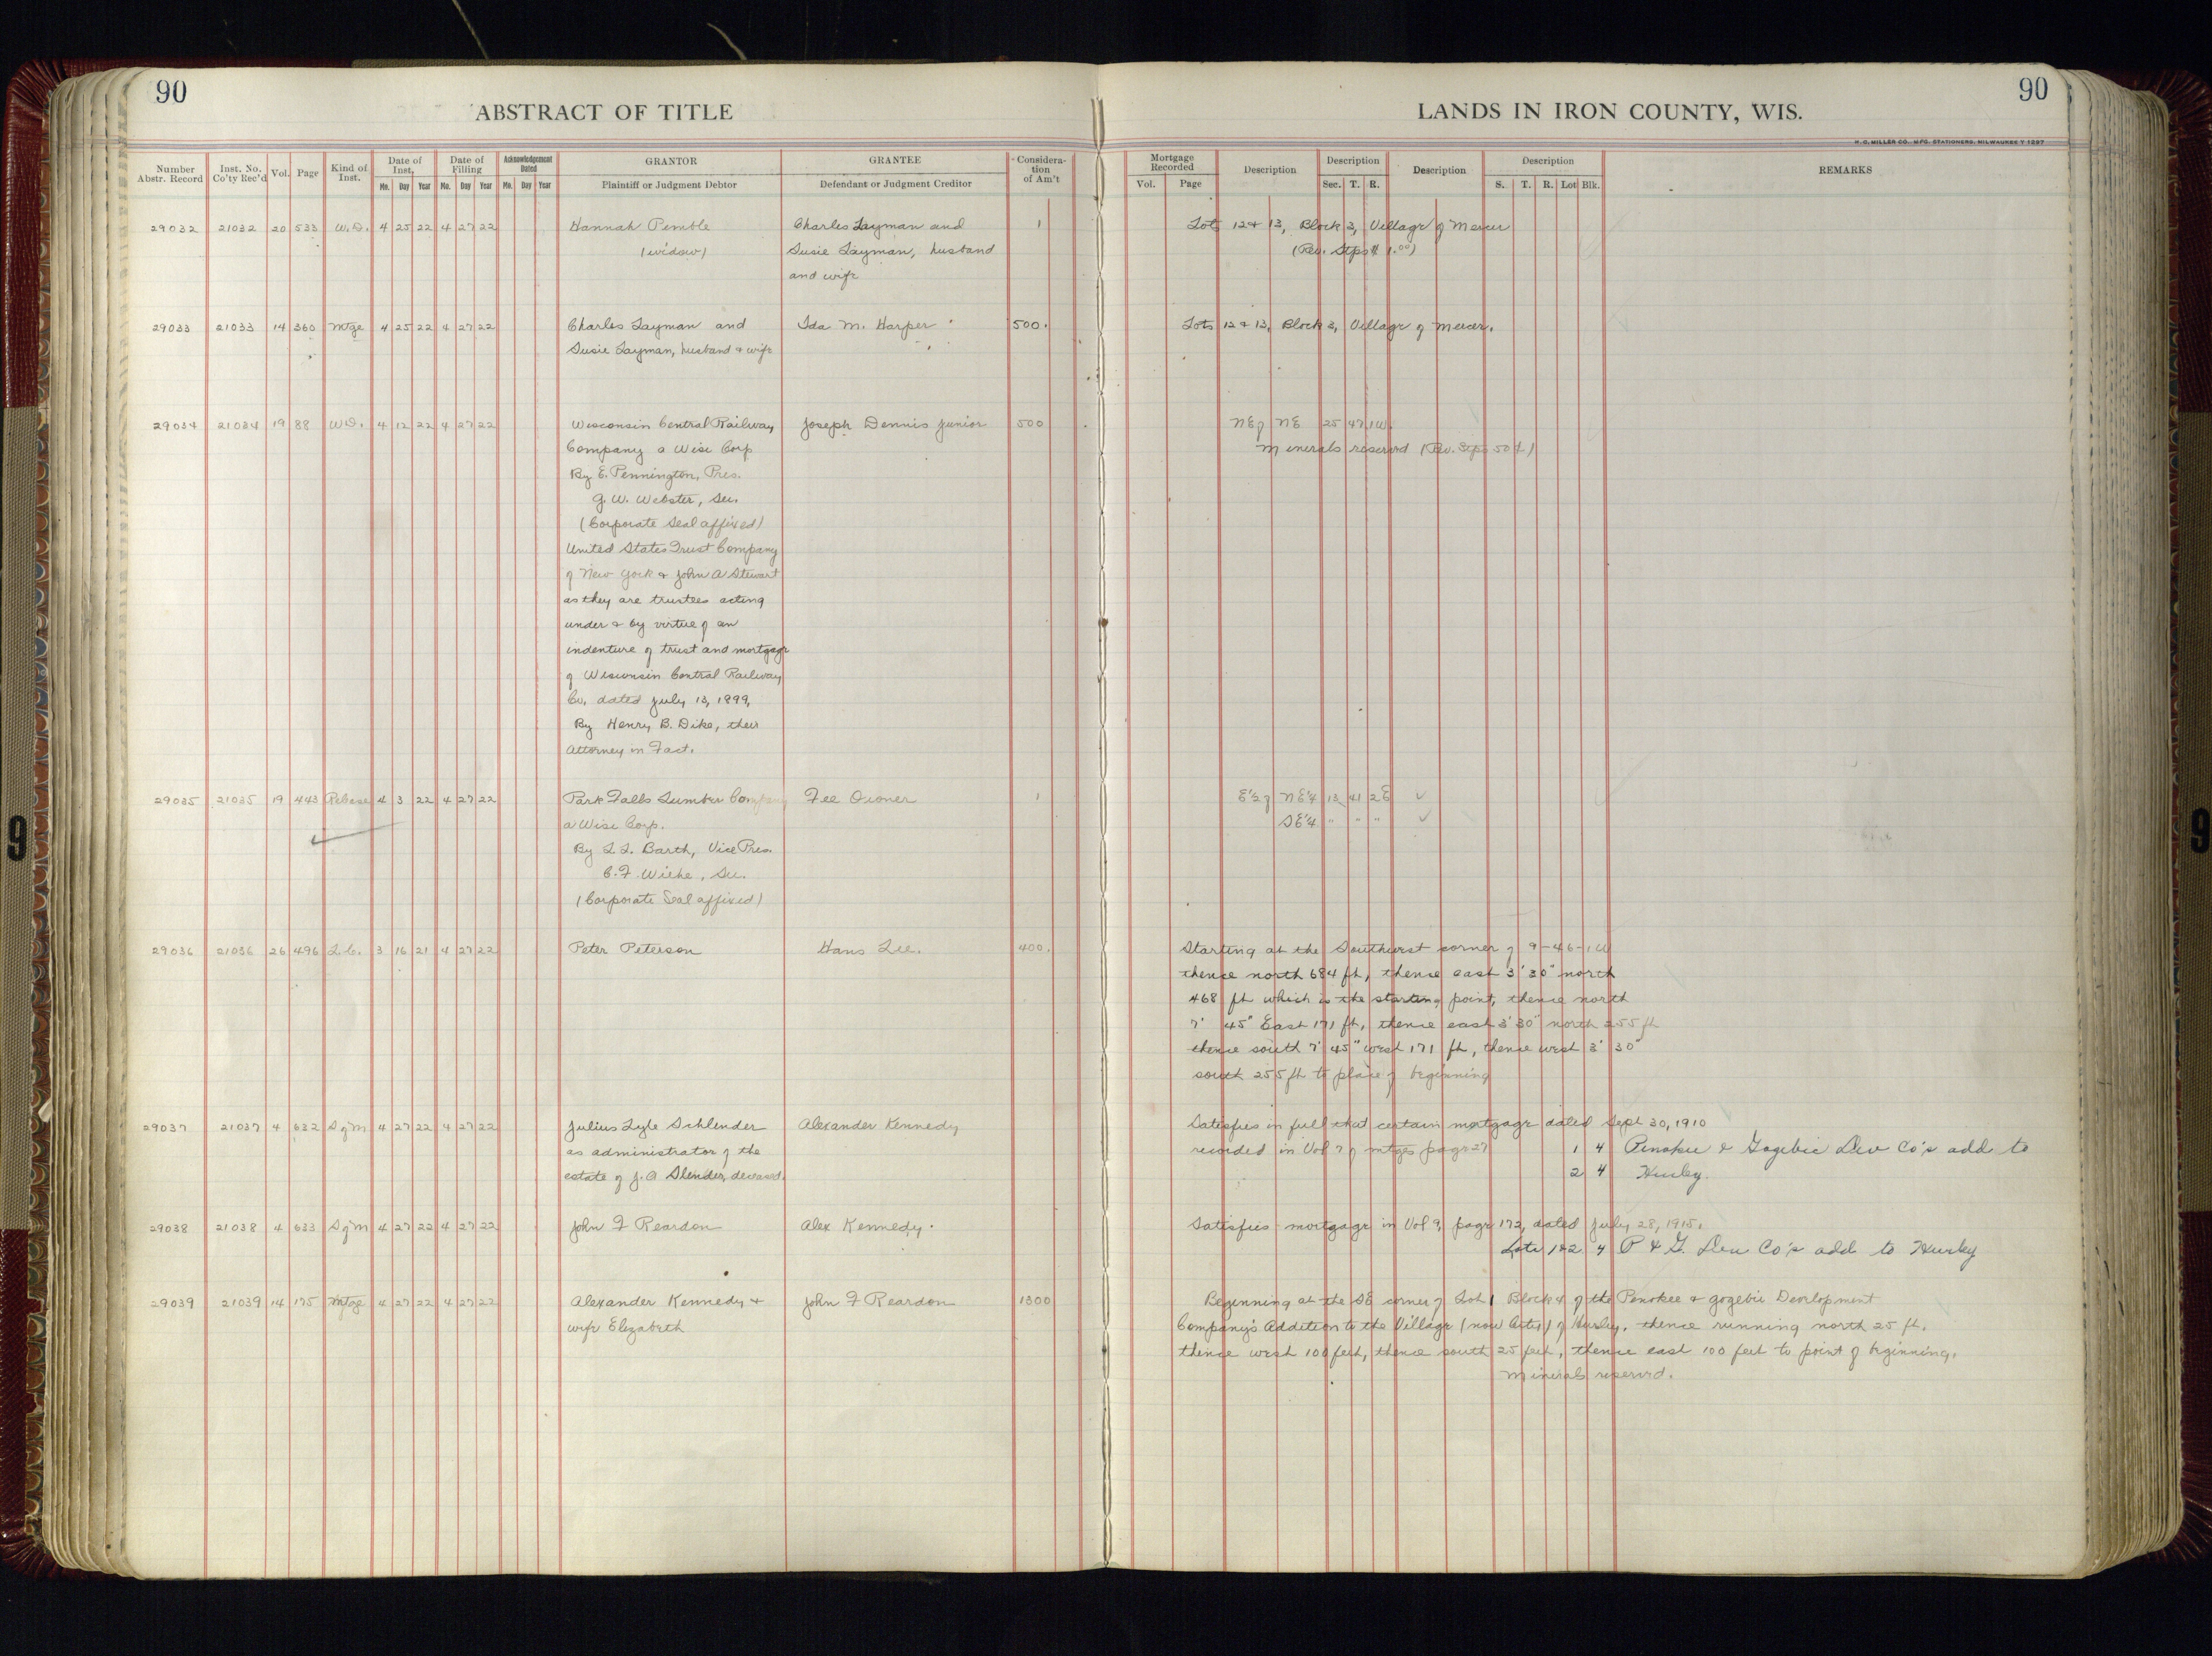 90
ABSTRACT OF TITLE
Number Abstr. Record
Inst. No. Co'ty Rec'd
Vol.
Page
Kind of Inst.
Date of Inst. Mo. Day Year
Date of Filling Mo. Day Year
Acknowledgement Dated Mo. Day Year
GRANTOR
Plaintiff or Judgment Debtor
GRANTEE
Defendant or Judgment Creditor
Considera- tion of Am't
29032 21032 20 533 W.D. 4 25 22 4 27 22 Hannah Pemble Charles Layman and 1
(widow) Susie Layman, husband
and wife
29033 21033 14 360 Mtge 4 25 22 4 27 22 Charles Layman and Ida M. Harper 500.
Susie Layman, husband & wife
29034 21034 19 88 W.D. 4 12 22 4 27 22 Wisconsin Central Railway Joseph Dennis Junior 500
Company a Wisc Corp
By E. Pennington, Pres.
G. W. Webster, Sec.
(Corporate Seal affixed)
United States Trust Company
of New York & John A Stewart
as they are trustees acting
under & by virtue of an
indenture of trust and mortgage
of Wisconsin Central Railway
Co. dated July 13, 1899,
By Henry B. Dike, their
Attorney in Fact.
29035 21035 19 443 Release 4 3 22 4 27 22 Park Falls Lumber Company Fee Owner 1
a Wisc Corp.
By L. L. Barth, Vice Pres.
C. F. Wiehe, Sec.
(Corporate Seal affixed)
29036 21036 26 496 L.C. 3 16 21 4 27 22 Peter Peterson Hans Lee. 400.
29037 21037 4 632 S of M 4 27 22 4 27 22 Julius Lyle Schlender Alexander Kennedy
as administrator of the
estate of J. A Slender, deceased.
29038 21038 4 633 S of M 4 27 22 4 27 22 John F Reardon Alex Kennedy.
29039 21039 14 175 Mtge 4 27 22 4 27 22 Alexander Kennedy & John F Reardon 1300
wife Elizabeth
90
LANDS IN IRON COUNTY, WIS.
H. C. MILLER CO., MFG. STATIONERS, MILWAUKEE
Mortgage Recorded Vol. Page
Description
Description Sec. T. R.
Description
Description S. T. R. Lot Blk.
REMARKS
Lots 12 & 13, Block 3, Village of Mercer
(Rev. Stps $ 1.00)
Lots 12 & 13, Block 3, Village of Mercer.
NE of NE 25 47 1W.
Minerals reserved (Rev. Stps 50¢)
E½ of NE¼ 13 41 2E ✓
SE¼ " " " ✓
Starting at the Southwest corner of 9-46-1W
thence north 684 ft, thence east 3' 30" north
468 ft which is the starting point, thence north
7' 45" East 171 ft, thence east 3' 30" north 255 ft
thence south 7' 45" west 171 ft, thence west 3' 30"
south 255 ft to place of beginning
Satisfies in full that certain mortgage dated Sept 30, 1910
recorded in Vol 7 of mtges page 27 1 4 Penokee & Gogebic Dev Co's add to
2 4 Hurley.
Satisfies mortgage in Vol 9, page 172, dated July 28, 1915.
Lots 1&2 4 P & G. Dev Co's add to Hurley
Beginning at the SE corner of Lot 1 Block 4 of the Penokee & Gogebic Development
Company's Addition to the Village (now City) of Hurley, thence running north 25 ft.
thence west 100 feet, thence south 25 feet, thence east 100 feet to point of beginning.
Minerals reserved.
9
9